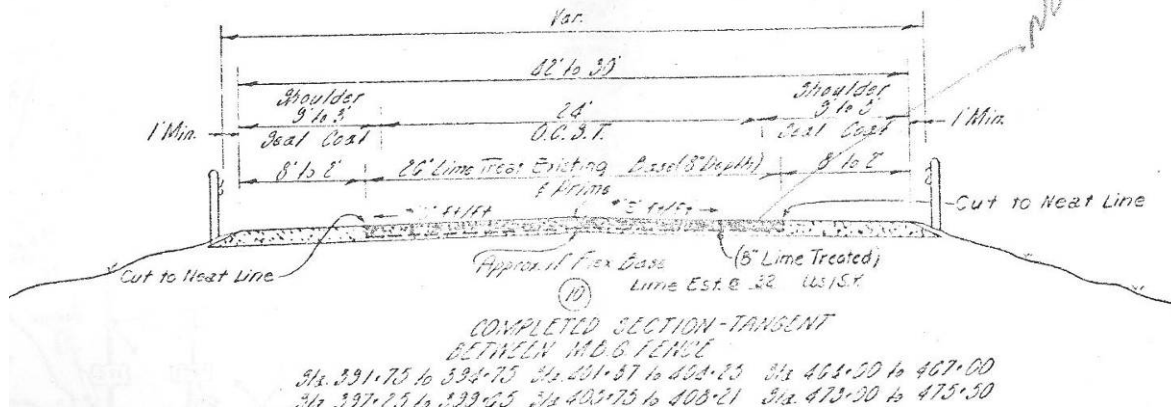 Var.
42' to 30'
Shoulder
9' to 3'
24'
Shoulder
9' to 3'
1' Min.
Seal Coat
O.C.S.T.
Seal Coat
1' Min.
8' to 2'
26' Lime Treat Existing Base (8" Depth)
& Prime
8' to 2'
ft/ft
ft/ft
Cut to Neat Line
Cut to Neat Line
Approx. 11" Flex Base
(8" Lime Treated)
Lime Est. @ .32
10
COMPLETED SECTION-TANGENT
BETWEEN M.B.G. FENCE
Sta. 391+75 to 394+75 Sta. 401+87 to 404+25 Sta. 464+00 to 467+00
Sta. 397+25 to 399+65 Sta. 405+75 to 408+21 Sta. 473+00 to 475+50